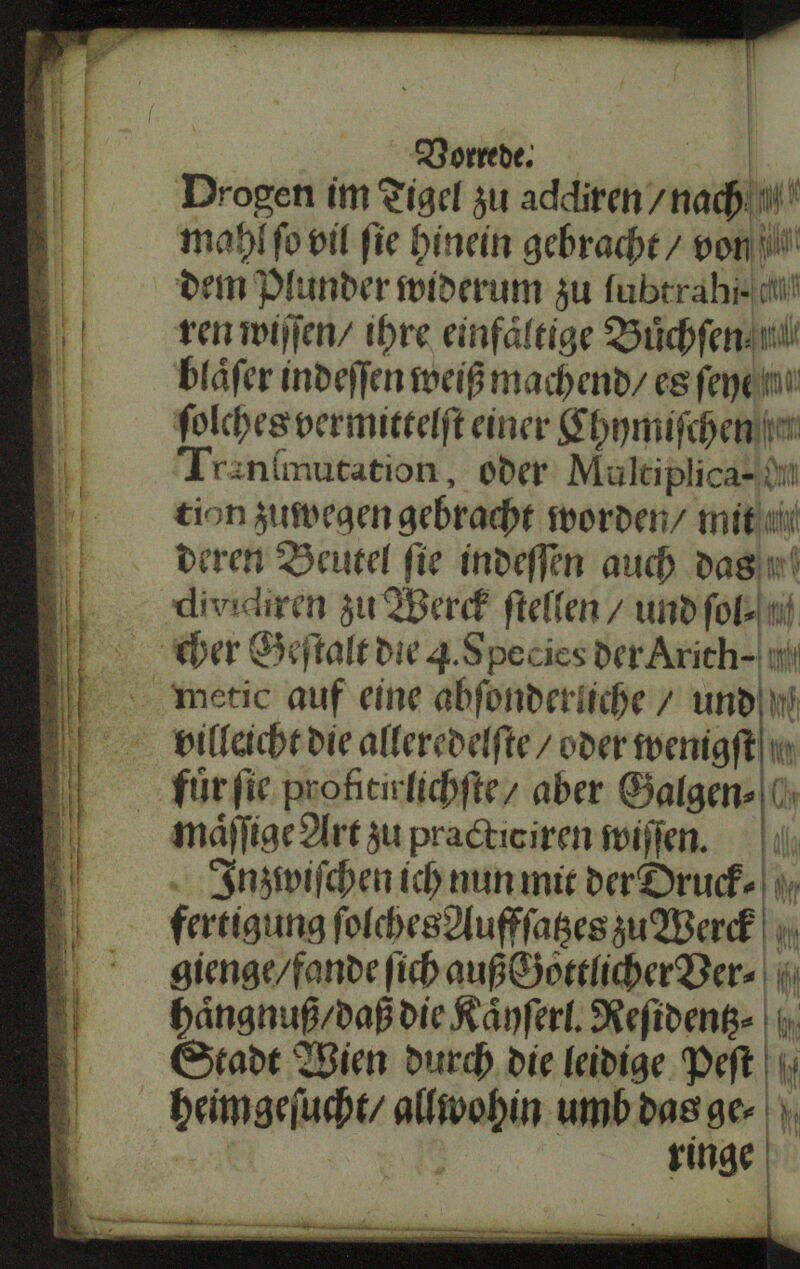 Vorrede.
Drogen im Tigel zu addiren / nach
mahl ſo vil ſie hinein gebracht / von
dem Plunder widerum zu ſubtrahi-
ren wiſſen / ihre einfältige Büchſen-
bläſer indeſſen weiß machend / es ſeye
ſolches vermittelſt einer Chymiſchen
Tranſmutation, oder Multiplica-
tion zuwegen gebracht worden / mit
deren Beutel ſie indeſſen auch das
dividiren zu Werck ſtellen / und ſol-
cher Geſtalt die 4. Species der Arith-
metic auf eine abſonderliche / und
villeicht die alleredelſte / oder wenigſt
für ſie profitirlichſte / aber Galgen-
mäſſige Art zu practiciren wiſſen.
Inzwiſchen ich nun mit der Druck-
fertigung ſolches Auffſatzes zu Werck
gienge / fande ſich auß Göttlicher Ver-
hängnuß / daß die Käyſerl. Reſidentz-
Stadt Wien durch die leidige Peſt
heimgeſucht / allwohin umb das ge-
ringe